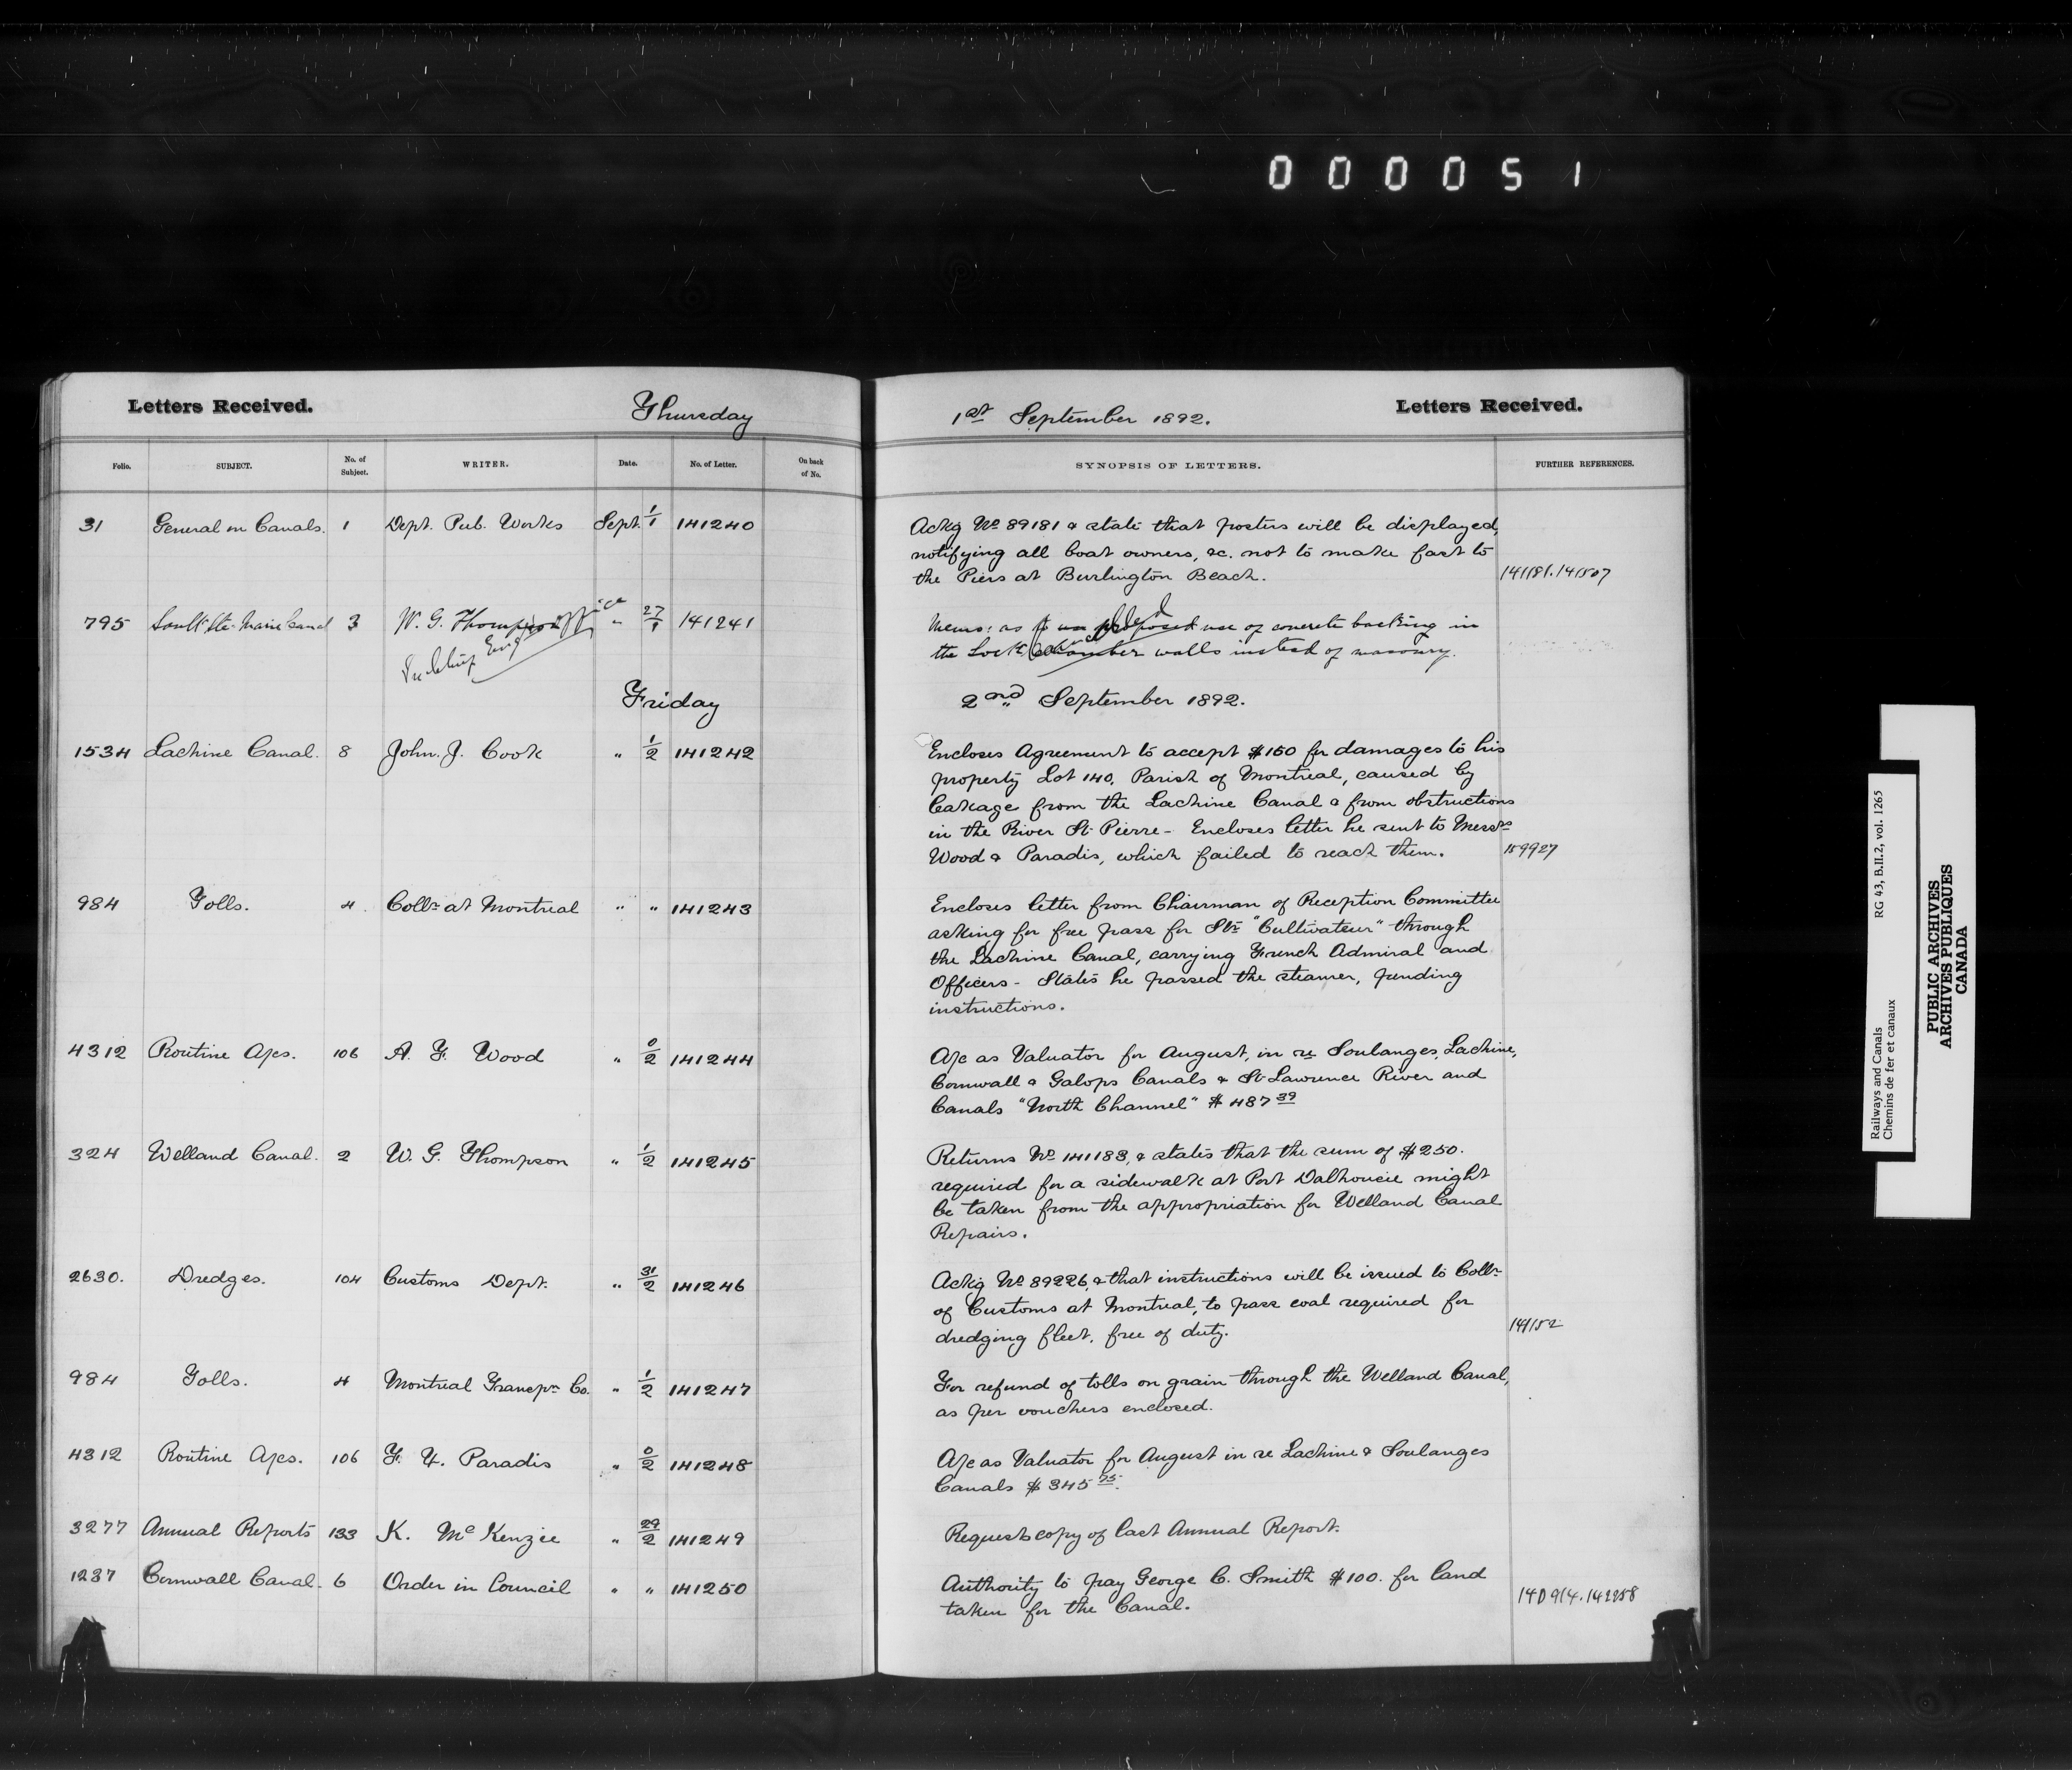 000051
Letters Received. Thursday
Folio. SUBJECT. No. of Subject. WRITER. Date. No. of Letter. On back of No.
31 General on Canals. 1 Dept. Pub. Works Sept. 1/1 141240
795 Sault Ste. Marie Canal 3 W. G. Thompson " 27/1 141241
Friday
1534 Lachine Canal. 8 John. J. Cook " 1/2 141242
984 Tolls. 4. Collr. at Montreal " " 141243
4312 Routine A/cs. 106 A. F. Wood " 0/2 141244
324 Welland Canal. 2 W. G. Thompson " 1/2 141245
2630. Dredges. 104 Customs Dept. " 31/2 141246
984 Tolls. 4 Montreal Transpn. Co. " 1/2 141247
4312 Routine A/cs. 106 F. X. Paradis " 0/2 141248
3277 Annual Reports 133 K. McKenzie " 29/2 141249
1237 Cornwall Canal. 6 Order in Council " " 141250
1st September 1892. Letters Received.
SYNOPSIS OF LETTERS. FURTHER REFERENCES.
Ackg No 89181 & state that posters will be displayed,
notifying all boat owners, &c. not to make fast to
the Piers at Burlington Beach. 141181.141507
Memo: as to use of concrete backing in
the Lock walls instead of masonry.
2nd September 1892.
Encloses Agreement to accept $150 for damages to his
property Lot 140, Parish of Montreal, caused by
leakage from the Lachine Canal & from obstructions
in the River St. Pierre - Encloses letter he sent to Messrs
Wood & Paradis, which failed to reach them. 159927
Encloses letter from Chairman of Reception Committee
asking for free pass for Str. "Cultivateur" through
the Lachine Canal, carrying French Admiral and
Officers - States he passed the steamer, pending
instructions.
A/c as Valuator for August, in re Soulanges, Lachine,
Cornwall & Galops Canals & St. Lawrence River and
Canals "North Channel" $487 39
Returns No 141183, & states that the sum of $250.
required for a sidewalk at Port Dalhousie might
be taken from the appropriation for Welland Canal
Repairs.
Ackg No 89226, & that instructions will be issued to Collr.
of Customs at Montreal, to pass coal required for
dredging fleet, free of duty. 141152
For refund of tolls on grain through the Welland Canal,
as per vouchers enclosed.
A/c as Valuator for August in re Lachine & Soulanges
Canals $345 75.
Requests copy of last Annual Report.
Authority to pay George C. Smith $100. for land
taken for the Canal. 140914.142258
Railways and Canals RG 43, B.II.2, vol. 1265
Chemins de fer et canaux
PUBLIC ARCHIVES
ARCHIVES PUBLIQUES
CANADA